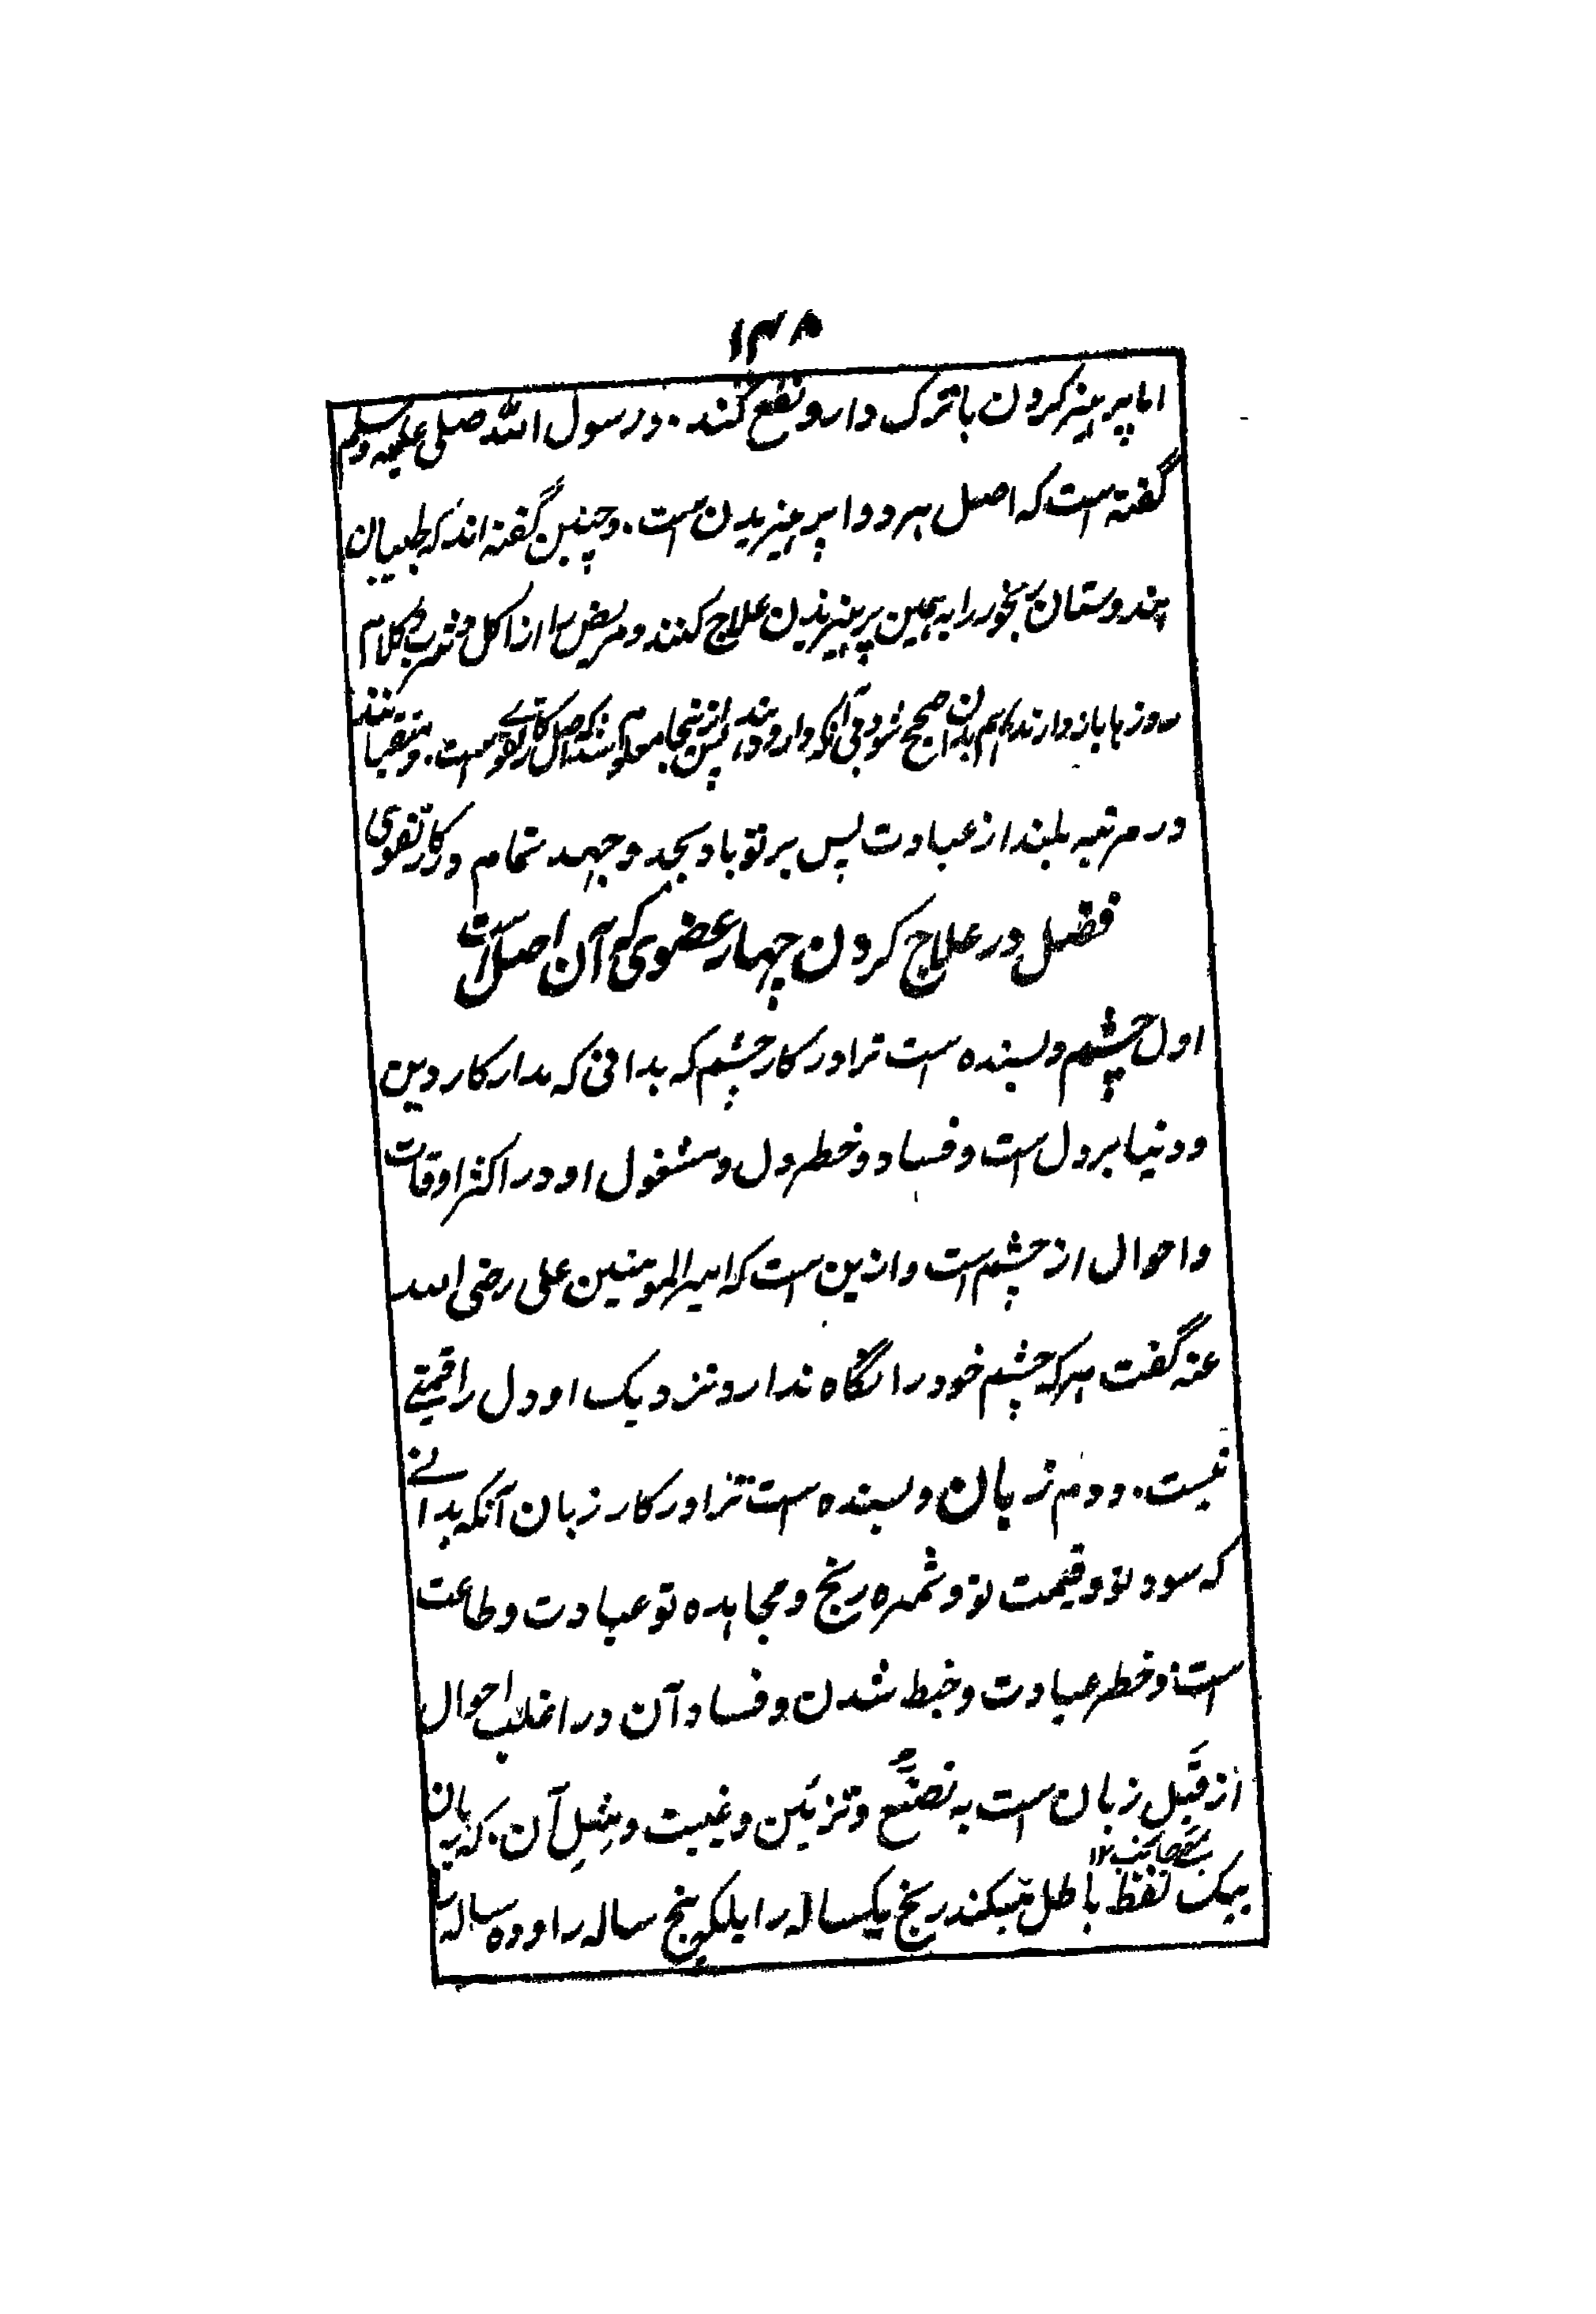 ۱۳۸
اما پرهیز کردن با ترک دارو نفع کند. و رسول الله صلی علیه وسلم
گفته است که اصل هر دوا پرهیزیدن است. و چنین گفته اند که طبیبان
هندوستان رنجور را به همین پرهیزیدن علاج کنند و مریض را از اکل و شرب و کلام
روزها باز دارند بدان صحیح شود بی آنکه دارو دهند پس ازینجا معلوم شد که اصل کار تقوی است. و متقیانند
در مرتبه بلند از عبادت پس بر تو باد بجد و جهد تمام در کار تقوی
فصل در علاج کردن چهار عضوی که آن اصل است
اول چشم و بسنده است ترا در کار چشم که بدانی که مدار کار دین
و دنیا بر دل است و فساد و خطر دل و مشغول او در اکثر اوقات
و احوال از چشم است و ازین است که امیر المومنین علی رضی الله
عنه گفت هر که چشم خود را نگاه ندارد نزدیک او دل را قیمتے
نیست. دوم زبان و بسنده است ترا در کار زبان آنکه بدانے
که سود تو و قیمت تو و ثمره رنج و مجاهده تو عبادت و طاعت
است و خطر عبادت و حبط شدن و فساد آن در اغلب احوال
از قِبَل زبان است به تصنّع و تزئین و غیبت و مِثلِ آن. که زبان
بیک لفظ باطل میکند رنج یکساله را بلکه پنج ساله را و ده ساله را